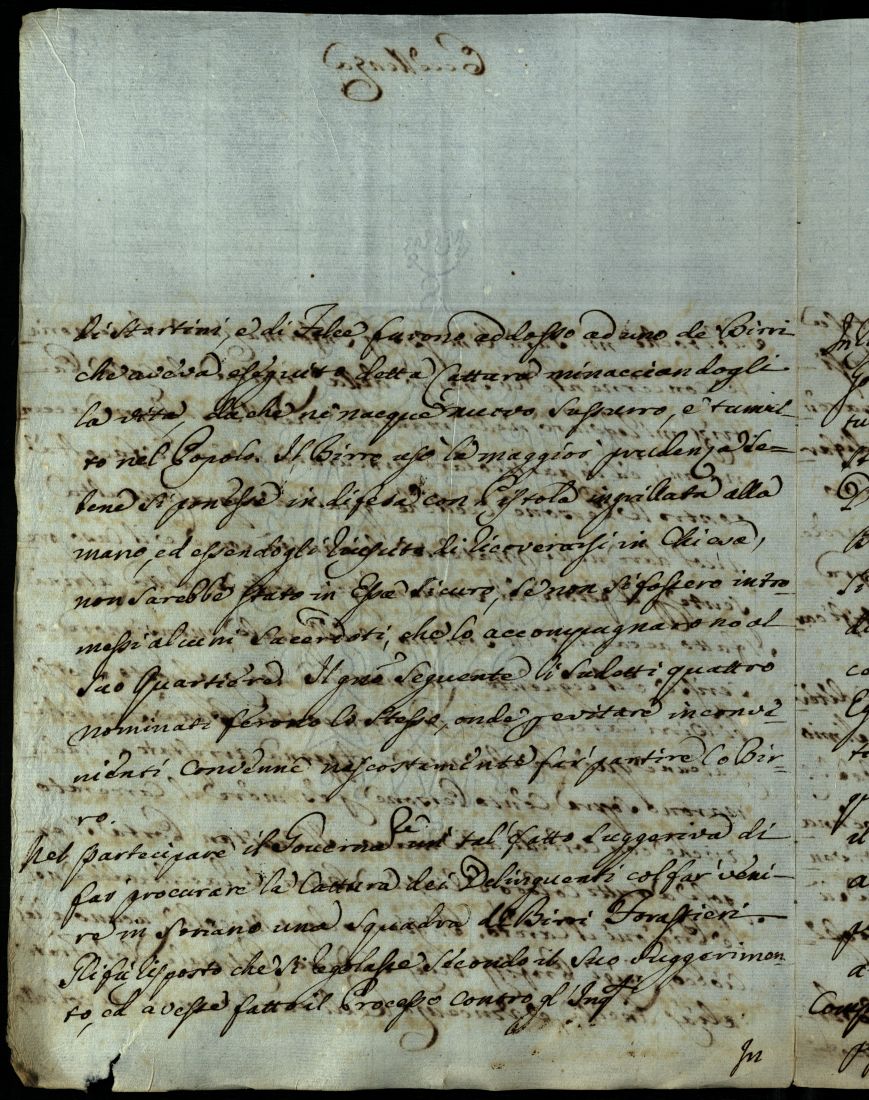 di Startini, e di Felce furono addosso ad uno de Birri
che aveva eseguita detta Cattura minacciandogli
la vita, da che ne nacque nuovo sussurro, e tumul-
to nel Popolo. Il Birro usò la maggior prudenza se=
bene si ponesse in difesa con Pistola inpallata alla
mano, ed essendogli riuscito di ricoverarsi in Chiesa,
non sarebbe stato in Essa sicuro, se non si fossero intro-
messi alcuni Sacerdoti, che lo accompagnarono al
suo Quartiere. Il gno seguente i sudotti quattro
nominati ferono lo stesso, onde p evitare inconve-
nienti convenne nascostamente far partire lo Bir-
ro.
Nel partecipare il Governare un tal fatto suggeriva di
far procurare la Cattura dei Delinquenti col far veni-
re in Soriano una squadra di Birri Forastieri.
Gli fù risposto che si regolasse secondo il suo suggerimen-
to, ed avesse fatto il Processo contro gl' Inqti
In